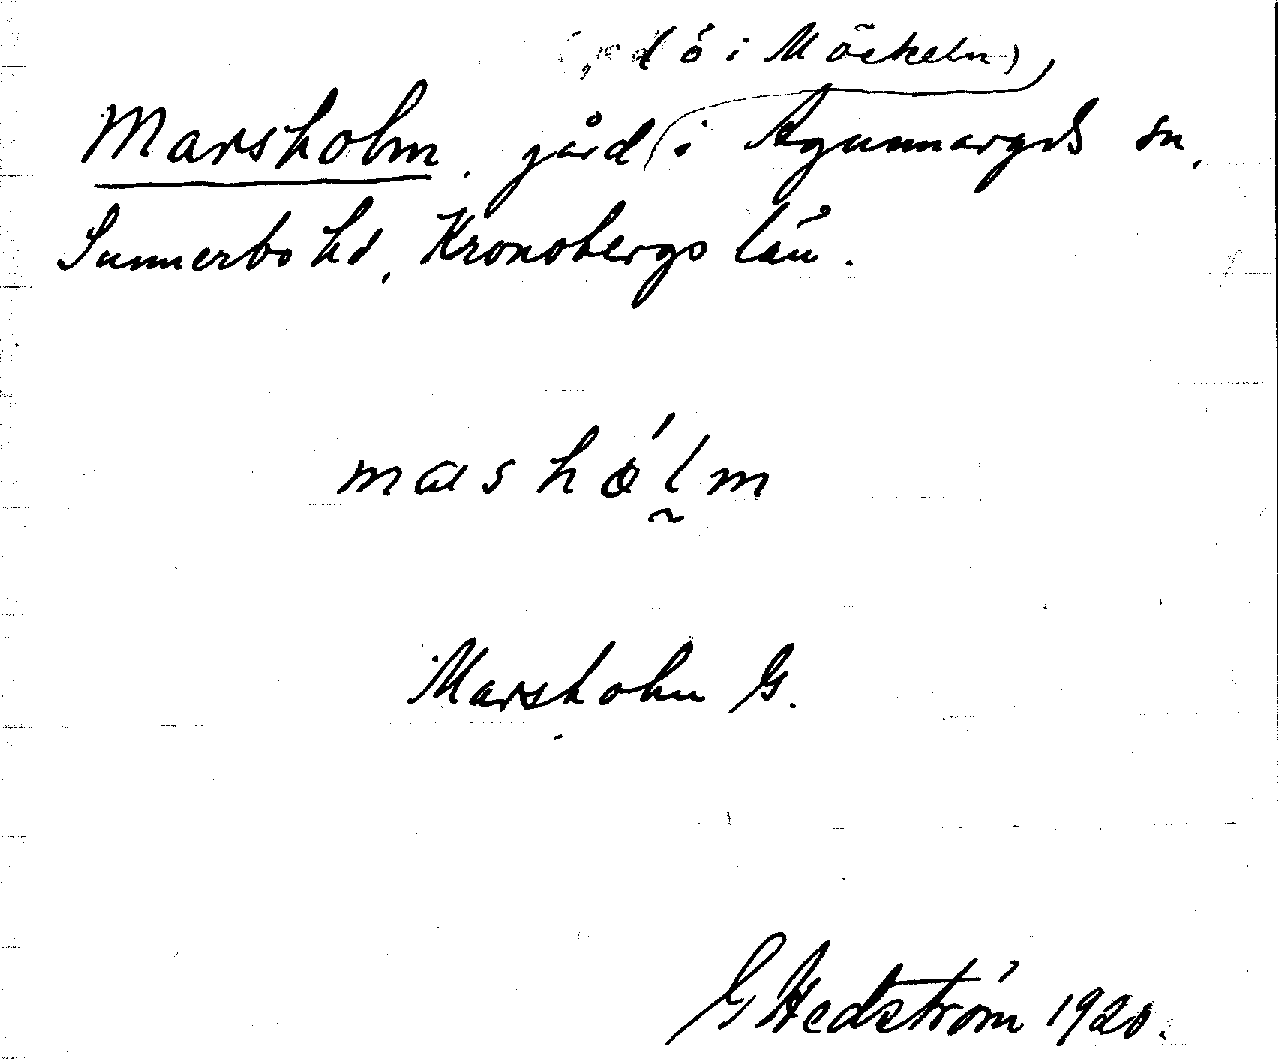 (på ö i Möckeln),
Marsholm, gård i Agunnaryds sn,
Sunnerbo hd, Kronobergs län.
masholm
Marsholm G.
G Hedström 1920.